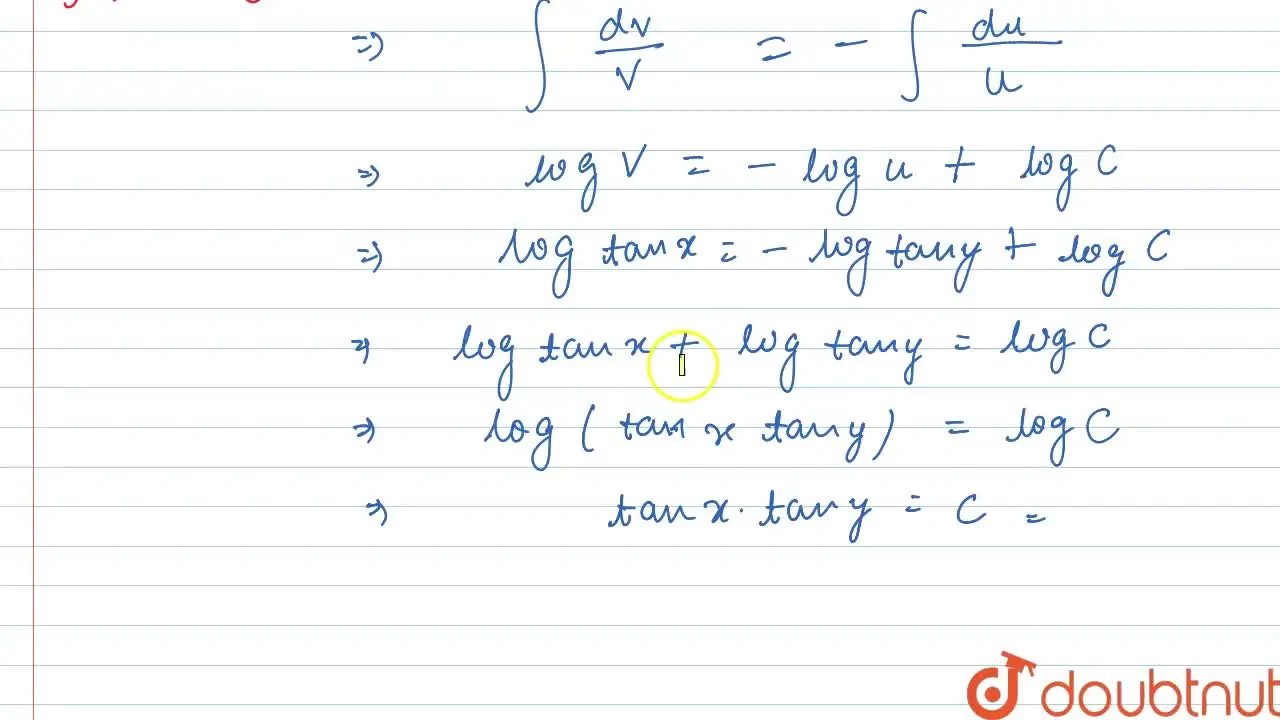 ⇒ ∫ dv/v = - ∫ du/u
⇒ log v = - log u + log C
⇒ log tan x = - log tan y + log C
⇒ log tan x + log tan y = log C
⇒ log ( tan x tan y ) = log C
⇒ tan x · tan y = C =
doubtnut